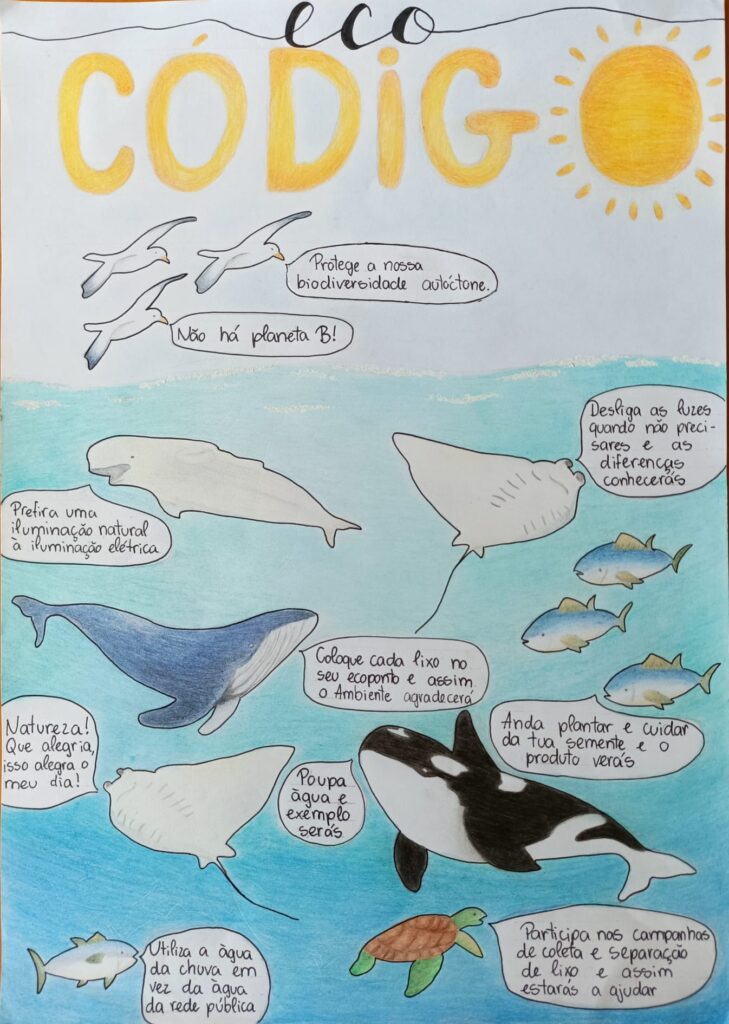 eco
CÓDIGO
Protege a nossa
biodiversidade autóctone.
Não há planeta B!
Desliga as luzes
quando não preci-
sares e as
diferenças
conhecerás
Prefira uma
iluminação natural
à iluminação elétrica
Coloque cada lixo no
seu ecoponto e assim
o Ambiente agradecerá
Anda plantar e cuidar
da tua semente e o
produto verás
Natureza!
Que alegria,
isso alegra o
meu dia!
Poupa
àgua e
exemplo
serás
Utiliza a àgua
da chuva em
vez da àgua
da rede pública
Participa nas campanhas
de coleta e separação
de lixo e assim
estarás a ajudar